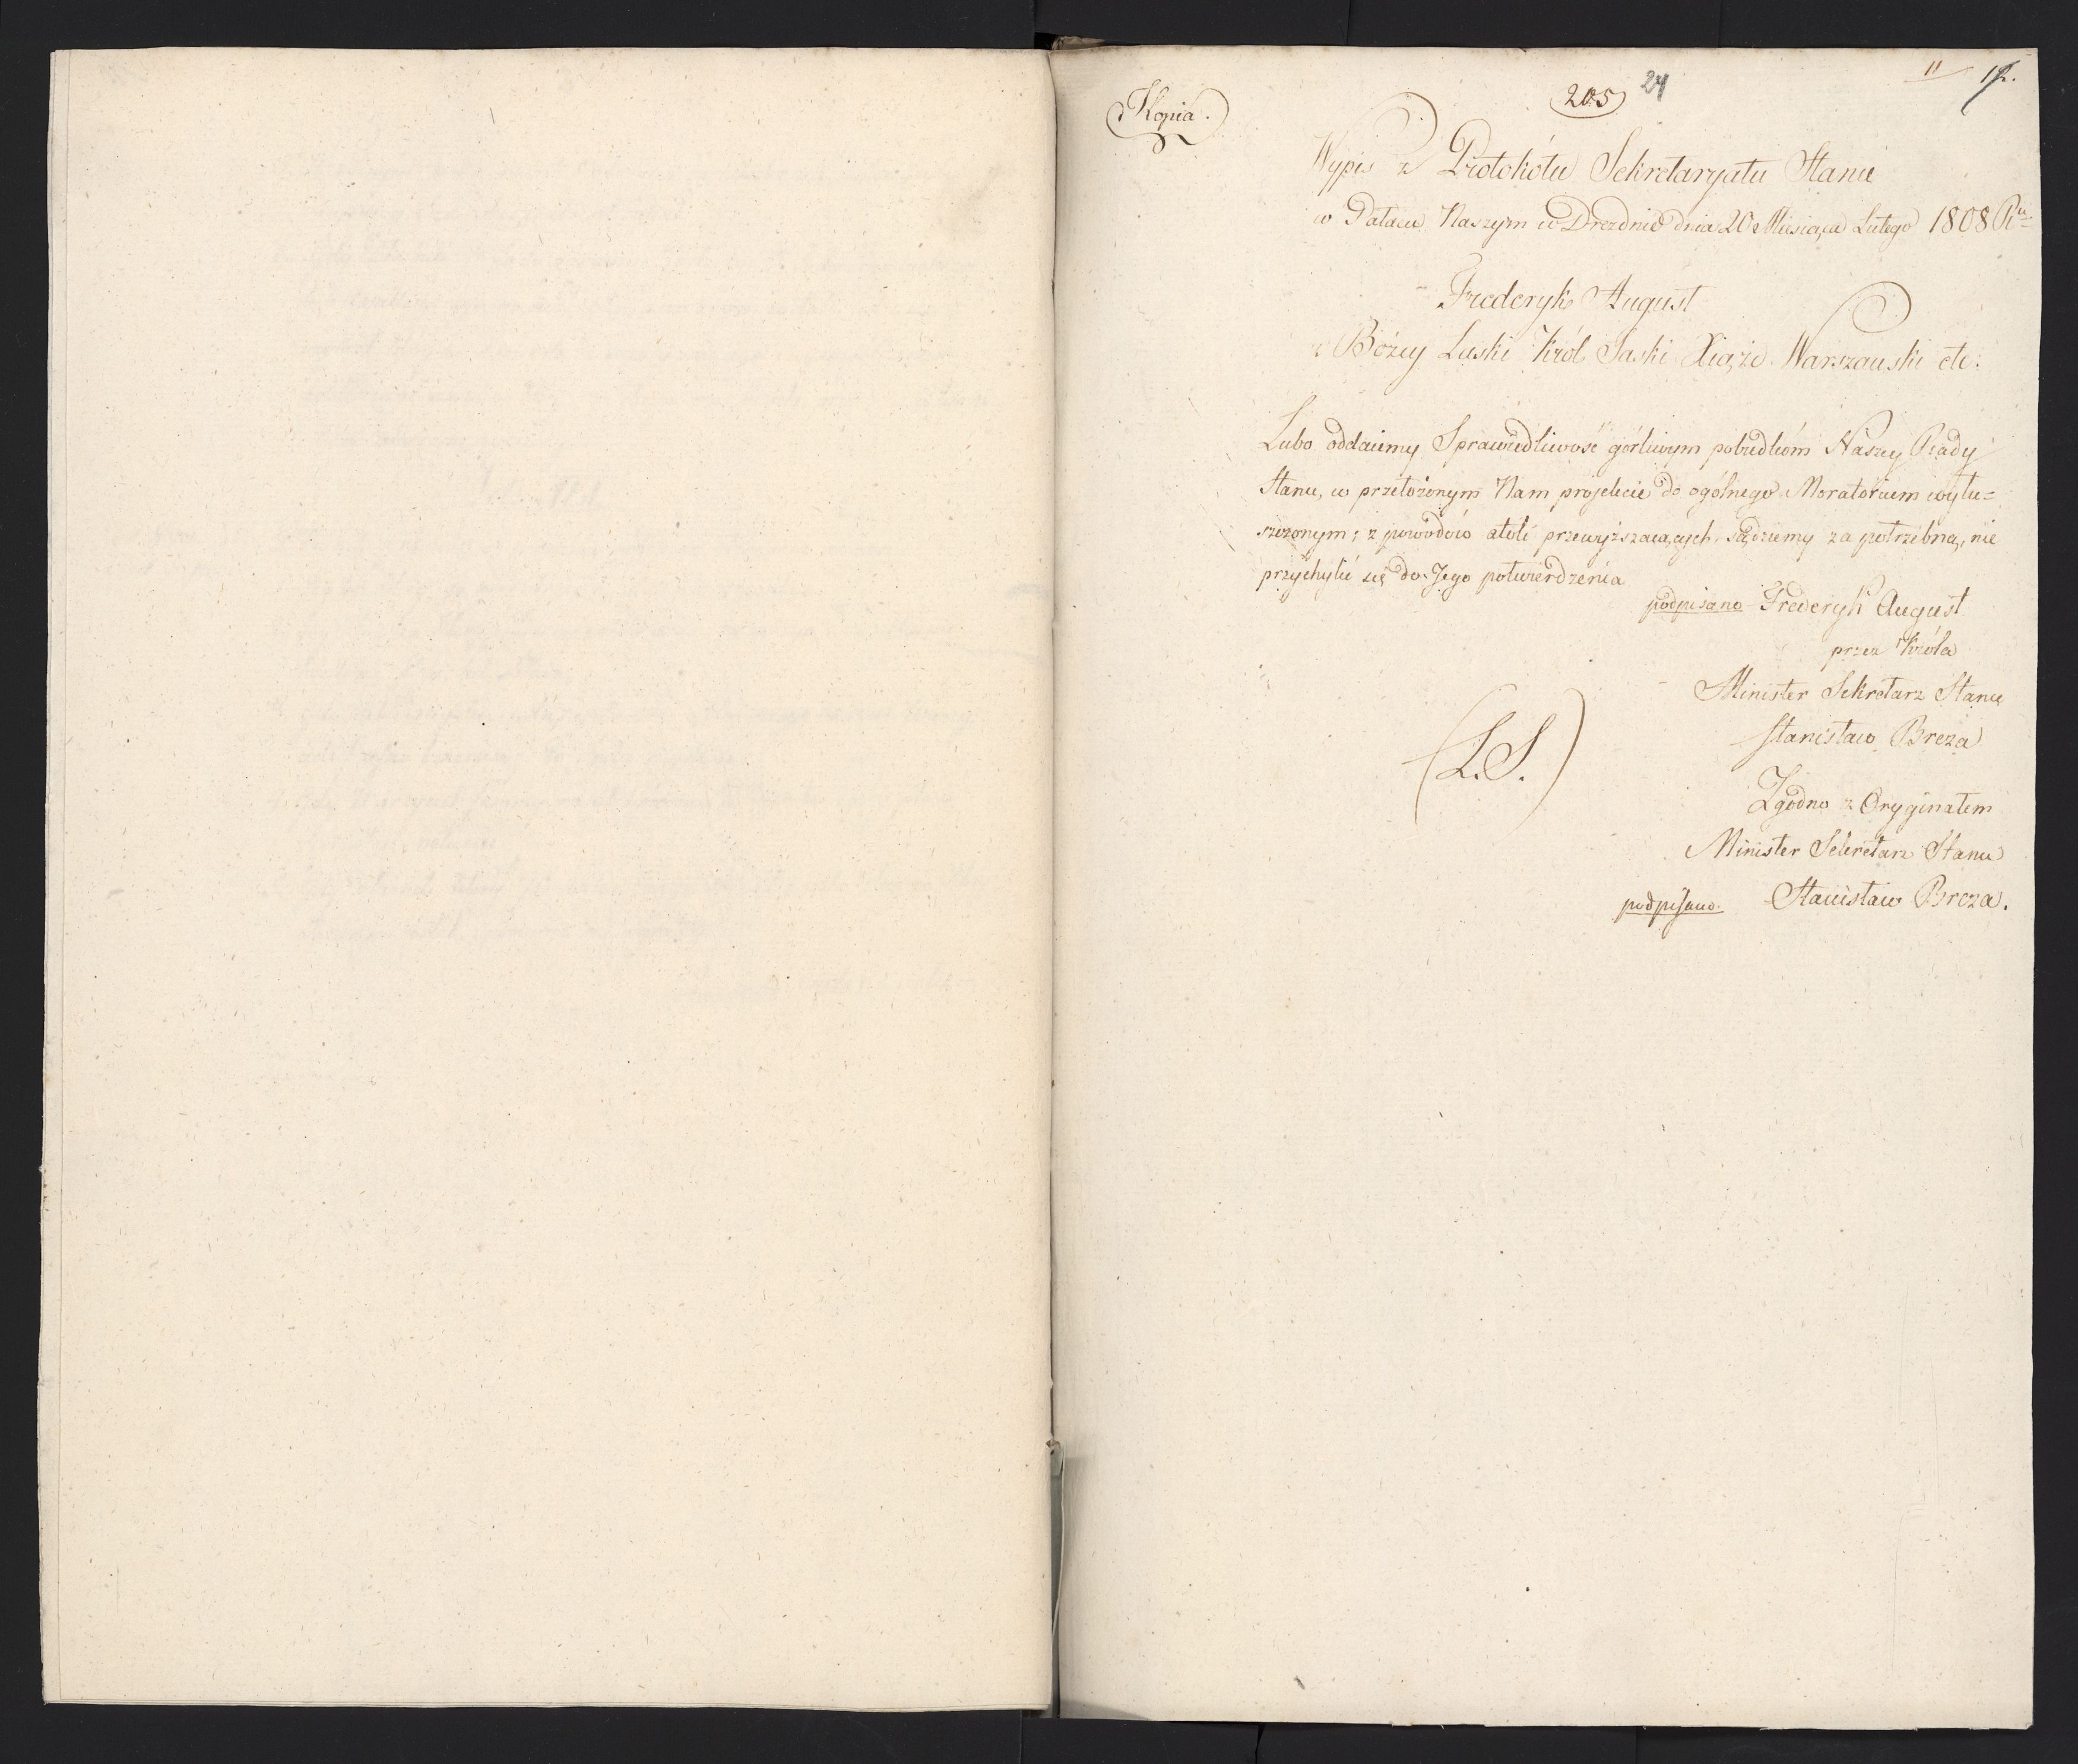 Kopia.
205 24
11 12.
Wypis z Protokółu Sekretaryatu Stanu
w Pałacu Naszym w Dreźnie dnia 20 Miesiąca Lutego 1808 Ru
Frederyk August
z Bożey Łaski Król Saski Xiąże Warszawski etc:
Lubo oddaiemy Sprawiedliwość górliwym pobudkóm Naszey Rady
Stanu, w przełożonym Nam projekcie do ogólnego Moratorium wyłu=
szczonym; z powodów atoli przewyższaiących, sądziemy za potrzebną, nie
przychylić się do Jego potwierdzenia
podpisano Frederyk August
przez Króla
Minister Sekretarz Stanu
Stanisław Breza
(L.S.)
Zgodno z Oryginałem
Minister Sekretarz Stanu
podpisano. Stanisław Breza.